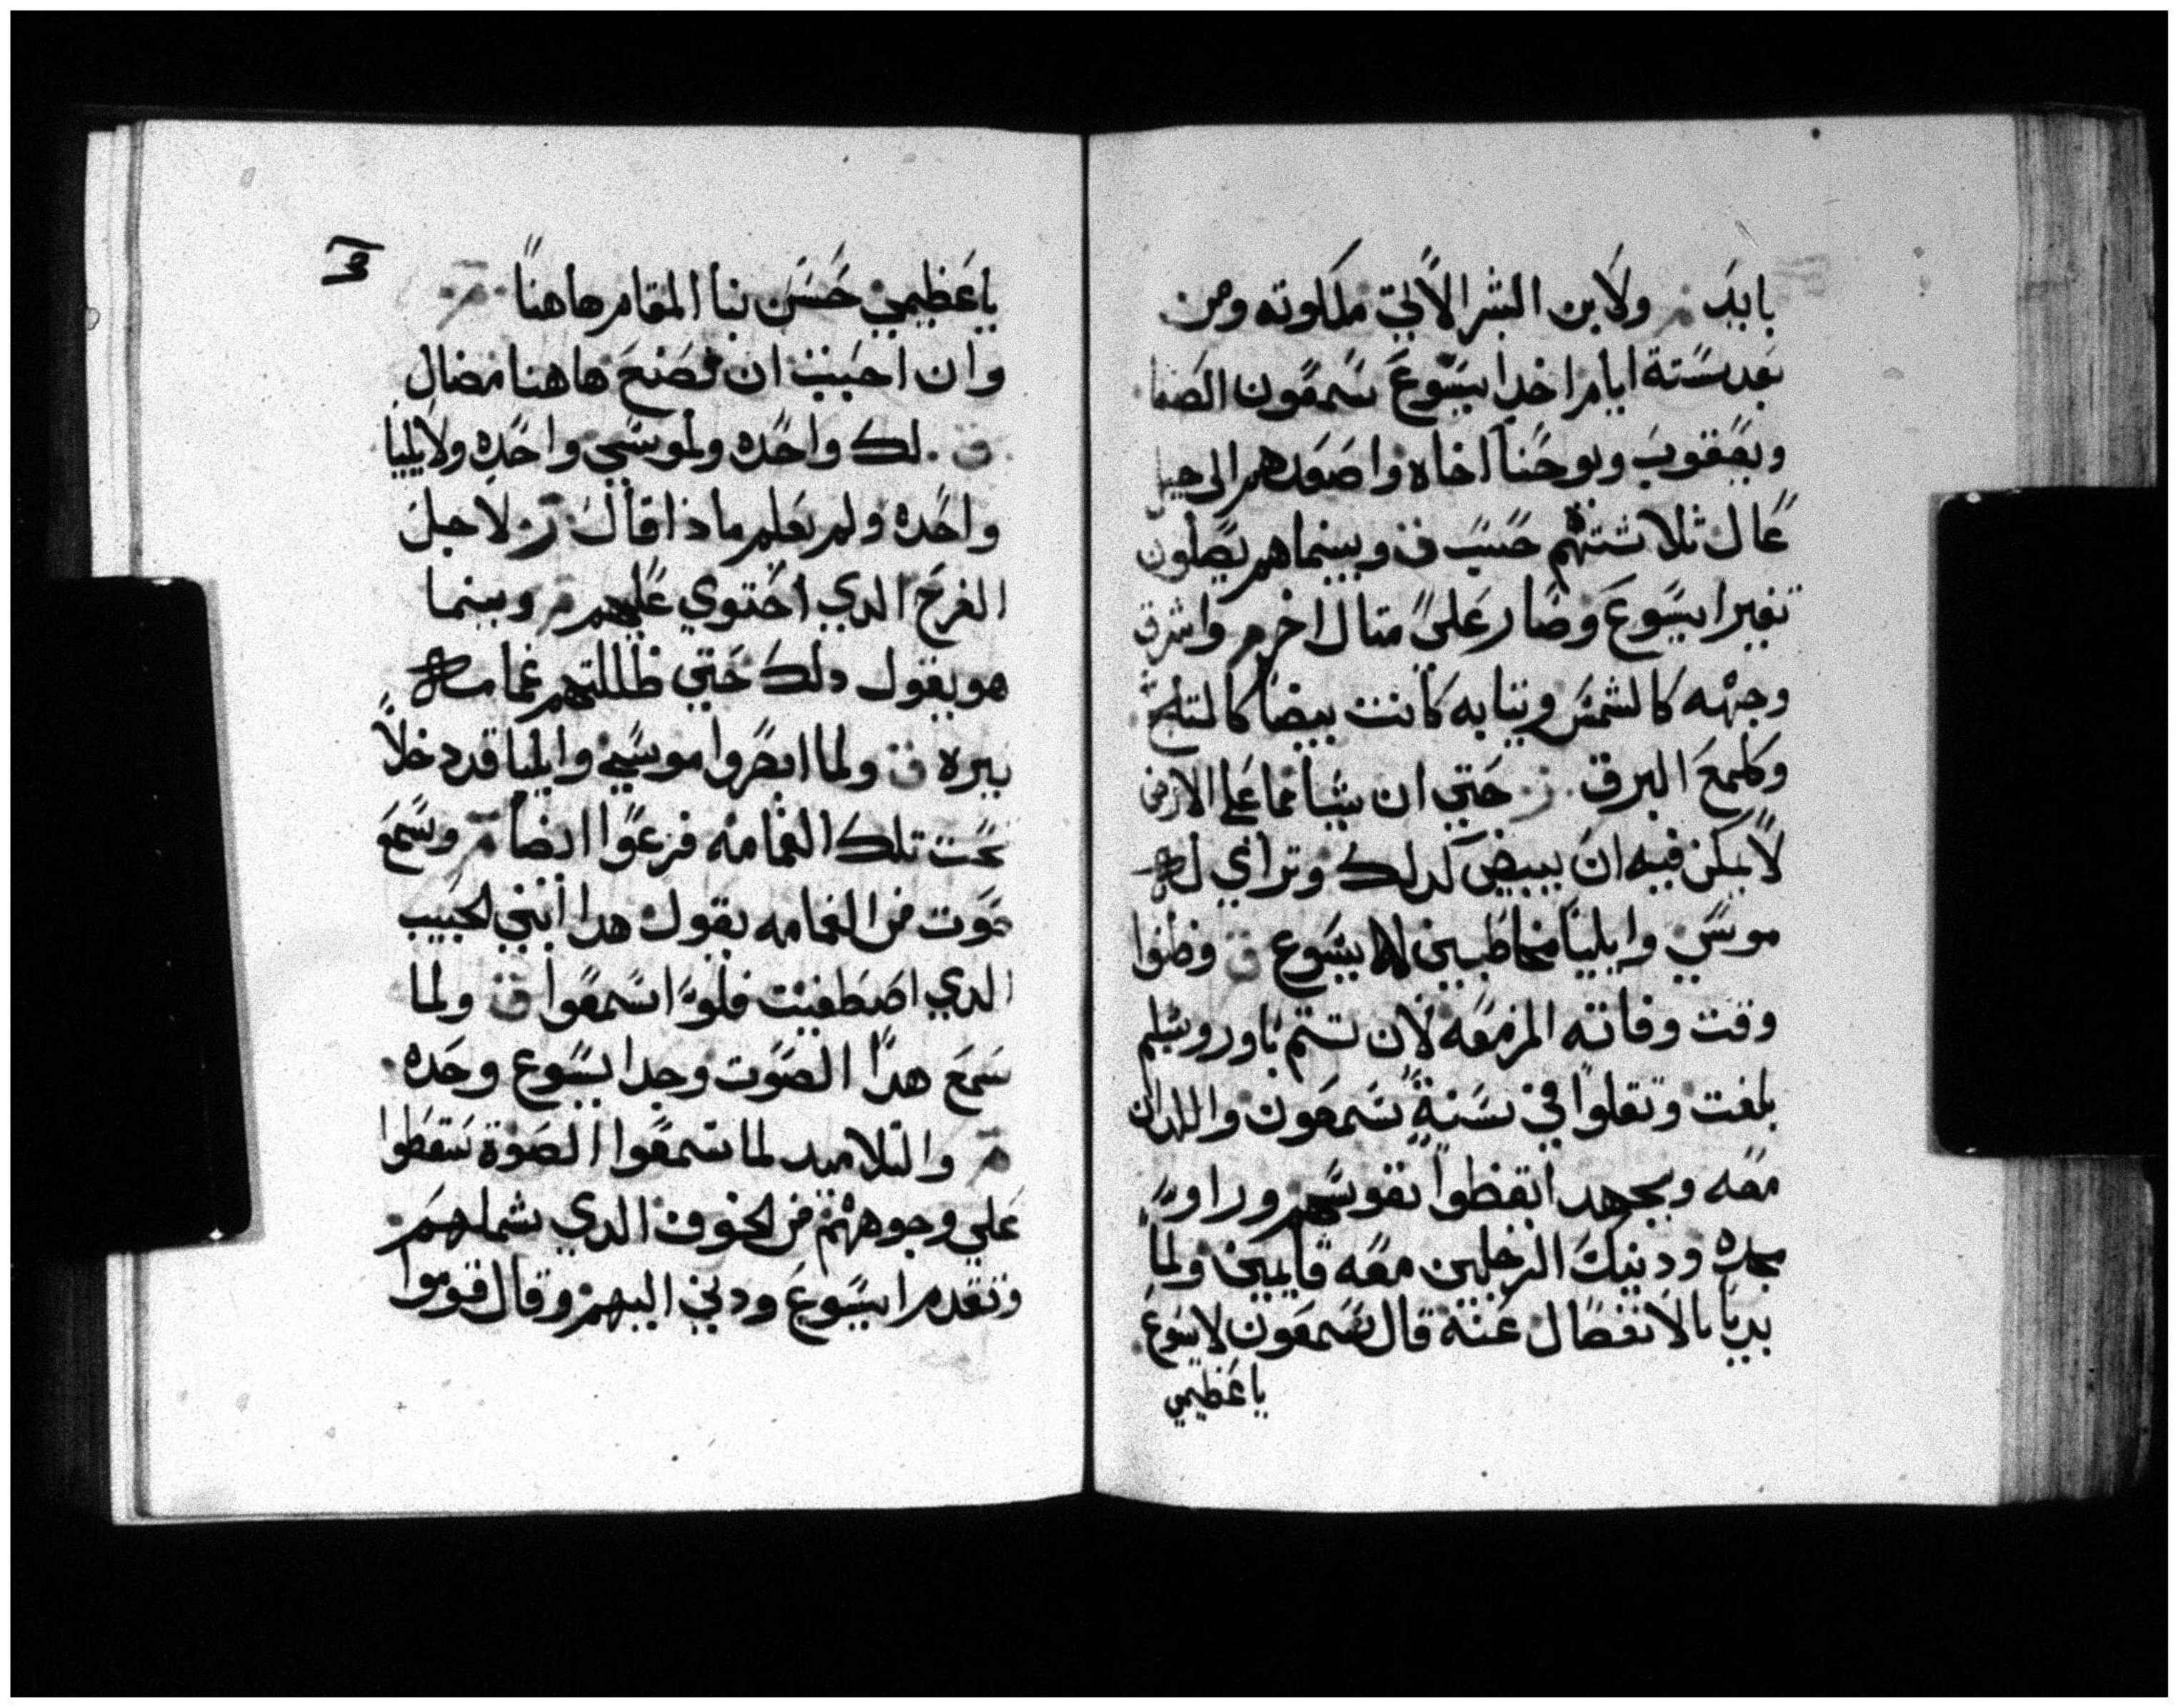 بابيد م ولابن البشر الاتي ملكوته ومن
بعد ستة ايام اخد ايسوع سمعون الصفا
ويعقوب ويوحنا اخاه واصعدهم الى جبل
عال ثلاثتهم حسب ق وبينما هم يصلون
تغير ايسوع وصار على متال اخر م واشرق
وجهه كالشمس وتيابه كانت بيضا كالتلج
وكلمع البرق ر حتي ان شيا مما علي الارض
لا يمكن فيه ان يبيض كدلك وتراي له
موسي وايليا مخاطبين لايسوع ق وظنوا
وقت وفاته المزمعه لان تتم باورشليم
بلغت وتقلوا في سنة سمعون واللدان
معه وبجهد ايقظوا نفوسهم وراوا
مجده ودينك الرجلين معه قايمين ولما
بديا بالانفصال عنه قال سمعون لايسوع
ياعظيمي
ياعظيمي حسن بنا المقام هاهنا م
وان احببت ان نصنع هاهنا مضال
ق لك واحده ولموسي واحده ولايليا
واحده ولم يعلم مادا قال ر لاجل
الفرح الدي احتوي عليهم م وبينما
هو يقول دلك حتي ظللتهم غمامه
نيره ق ولما ابصروا موسي وايليا قد دخلا
تحت تلك الغمامه فزعوا ايضا م وسمع
صوت من الغمامه يقول هدا ابني الحبيب
الدي اصطفيت فله اسمعوا ق ولما
سمع هدا الصوت وجدا يسوع وحده
م والتلاميد لما سمعوا الصوة سقطوا
علي وجوههم من الخوف الدي شملهم
وتقدم ايسوع ودني اليهم وقال قوموا